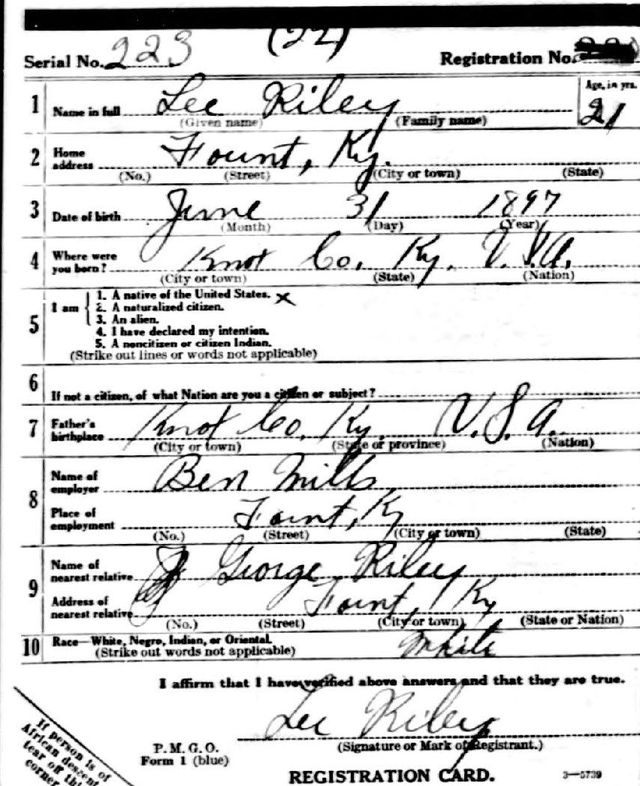 (22)
Serial No. 223 Registration No.
1 Name in full Lee Riley Age, in yrs.
(Given name) (Family name) 21
2 Home address Fount, Ky.
(No.) (Street) (City or town) (State)
3 Date of birth June 31 1897
(Month) (Day) (Year)
4 Where were you born? Knot Co. Ky. U.S.A.
(City or town) (State) (Nation)
5 I am
1. A native of the United States. x
2. A naturalized citizen.
3. An alien.
4. I have declared my intention.
5. A noncitizen or citizen Indian.
(Strike out lines or words not applicable)
6 If not a citizen, of what Nation are you a citizen or subject?
7 Father's birthplace Knot Co. Ky. U.S.A.
(City or town) (State or province) (Nation)
8 Name of employer Ben Mills
Place of employment Fount, Ky
(No.) (Street) (City or town) (State)
9 Name of nearest relative George Riley
Address of nearest relative Fount, Ky
(No.) (Street) (City or town) (State or Nation)
10 Race—White, Negro, Indian, or Oriental.
(Strike out words not applicable) White
I affirm that I have verified above answers and that they are true.
Lee Riley
P. M. G. O. (Signature or Mark of Registrant.)
Form 1 (blue)
REGISTRATION CARD. 3—5739
If person is of
African descent
tear off this
corner